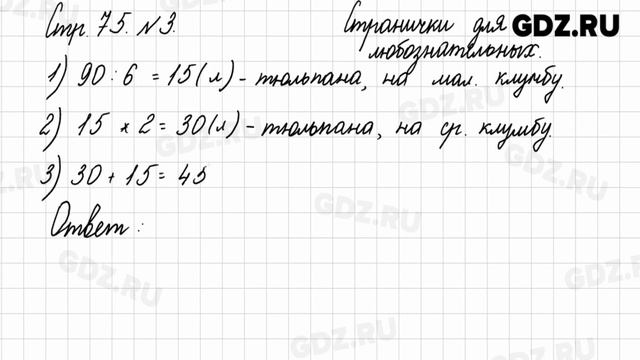 Стр. 75. №3. Странички для
любознательных.
1) 90 : 6 = 15 (л) - тюльпана, на мал. клумбу.
2) 15 × 2 = 30 (л) - тюльпана, на ср. клумбу.
3) 30 + 15 = 45
Ответ :
GDZ.RU
GDZ.RU
GDZ.RU
GDZ.RU
GDZ.RU
GDZ.RU
GDZ.RU
GDZ.RU
GDZ.RU